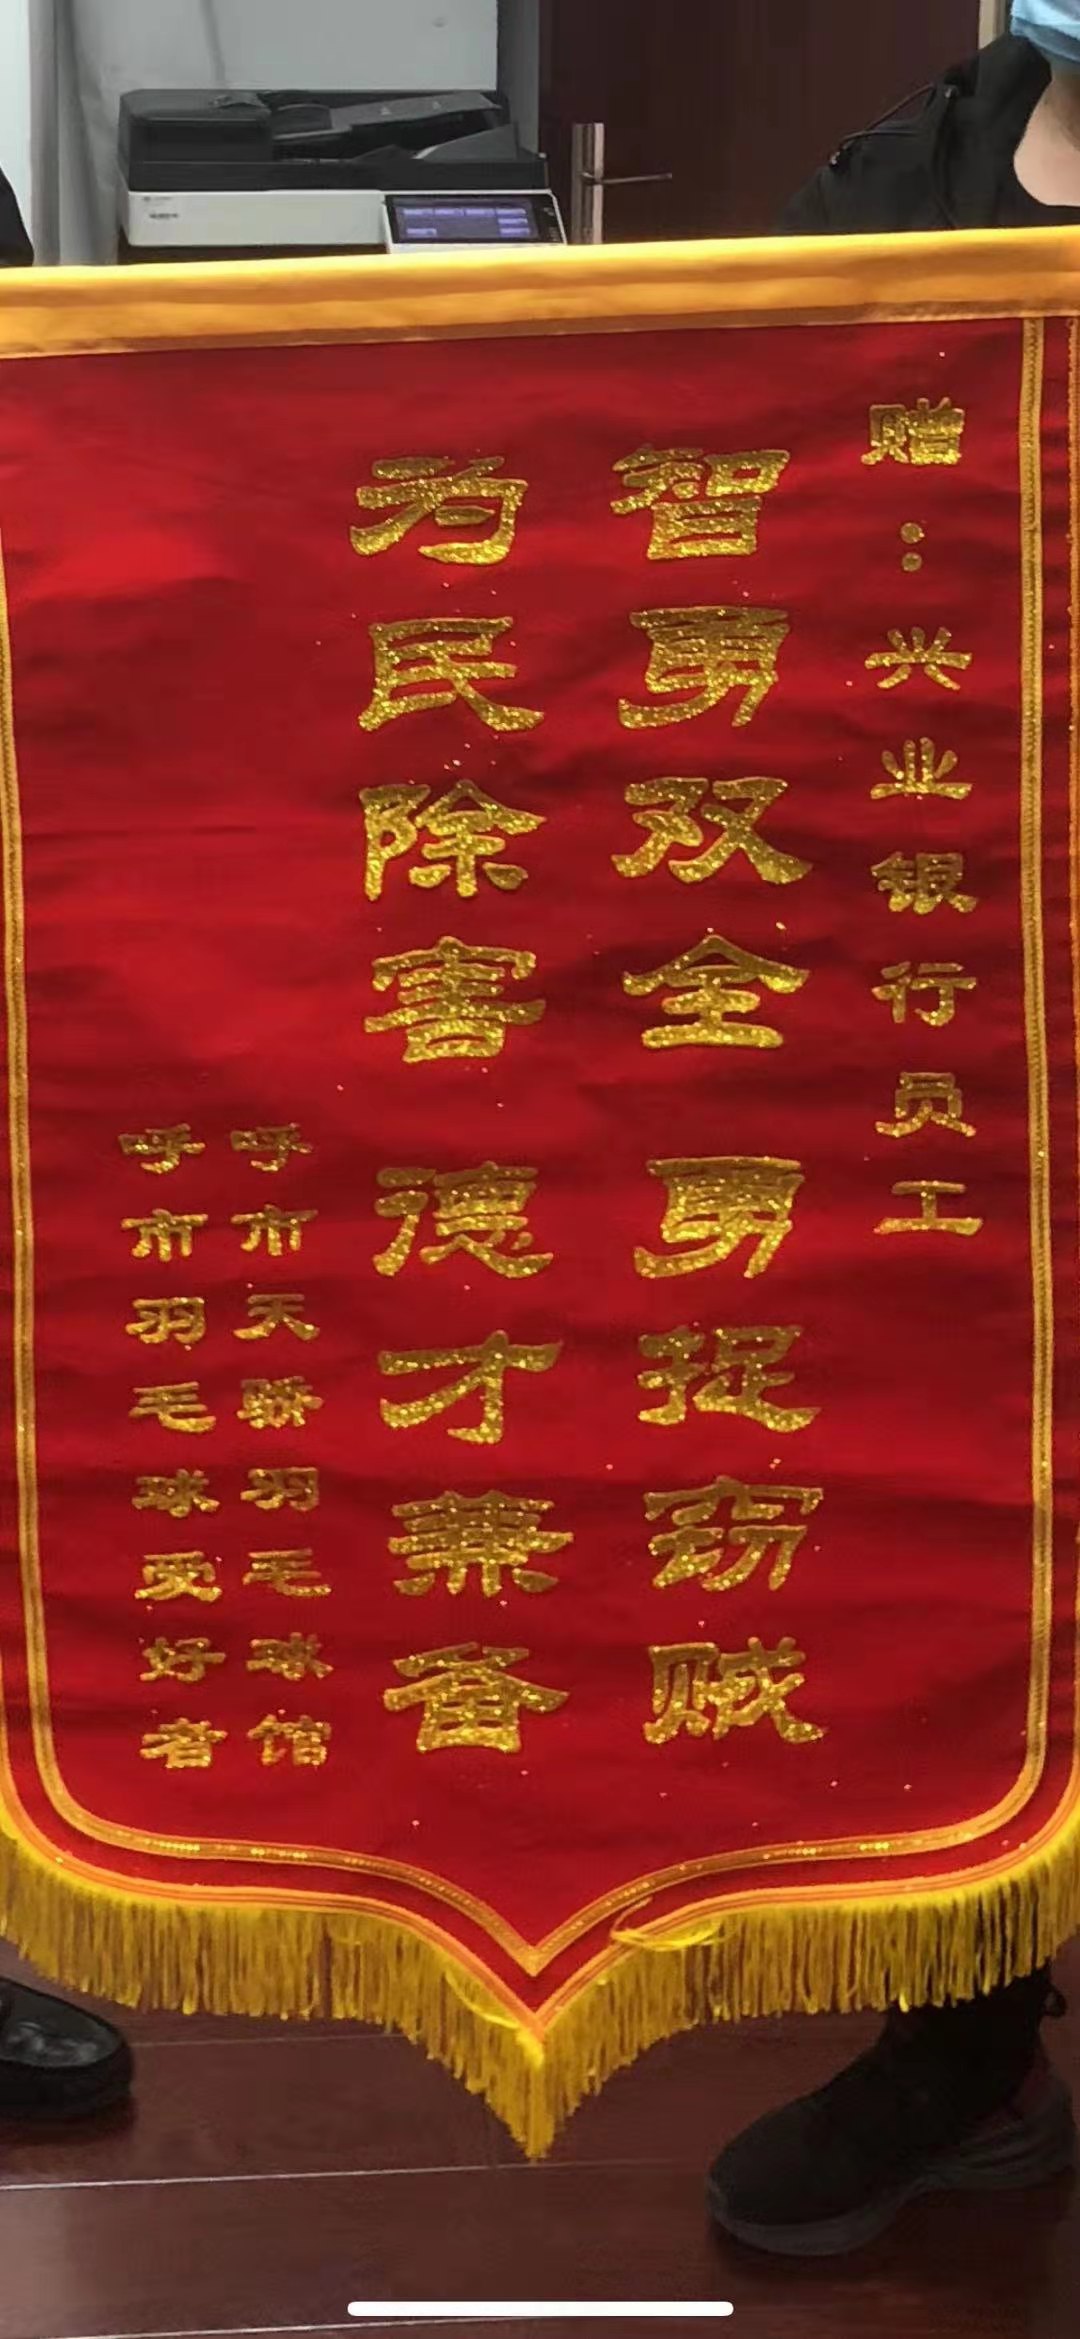 赠：兴业银行员工
智勇双全 勇捉窃贼
为民除害 德才兼备
呼市天骄羽毛球馆
呼市羽毛球爱好者